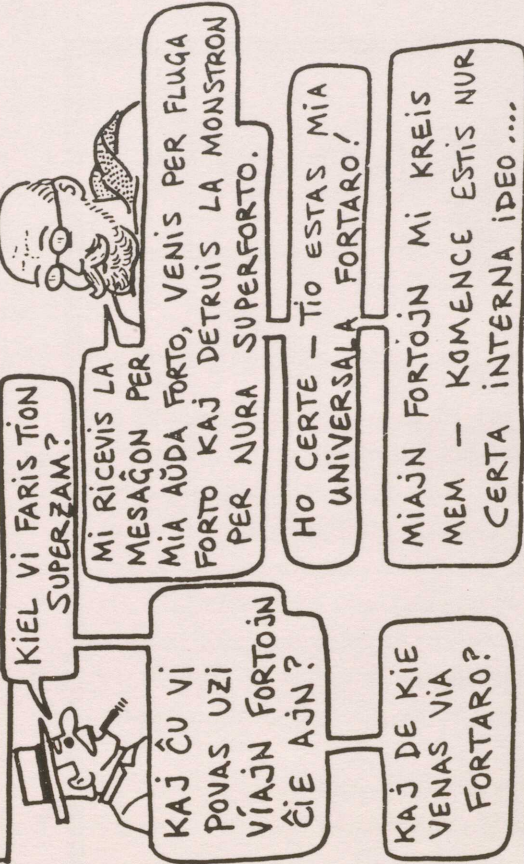 KIEL VI FARIS TION
SUPERZAM?
MI RICEVIS LA
MESAĜON PER
MIA AŬDA FORTO, VENIS PER FLUGA
FORTO KAJ DETRUIS LA MONSTRON
PER NURA SUPERFORTO.
KAJ ĈU VI
POVAS UZI
VIAJN FORTOJN
ĈIE AJN?
HO CERTE – TIO ESTAS MIA
UNIVERSALA FORTARO!
KAJ DE KIE
VENAS VIA
FORTARO?
MIAJN FORTOJN MI KREIS
MEM – KOMENCE ESTIS NUR
CERTA INTERNA IDEO....